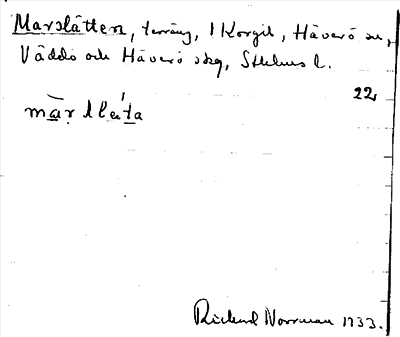 Marslätten, terräng, 1 Korgil, Häverö sn,
Väddö och Häverö skg, Sthlms l.
22,
Rickard Norrman 1933.